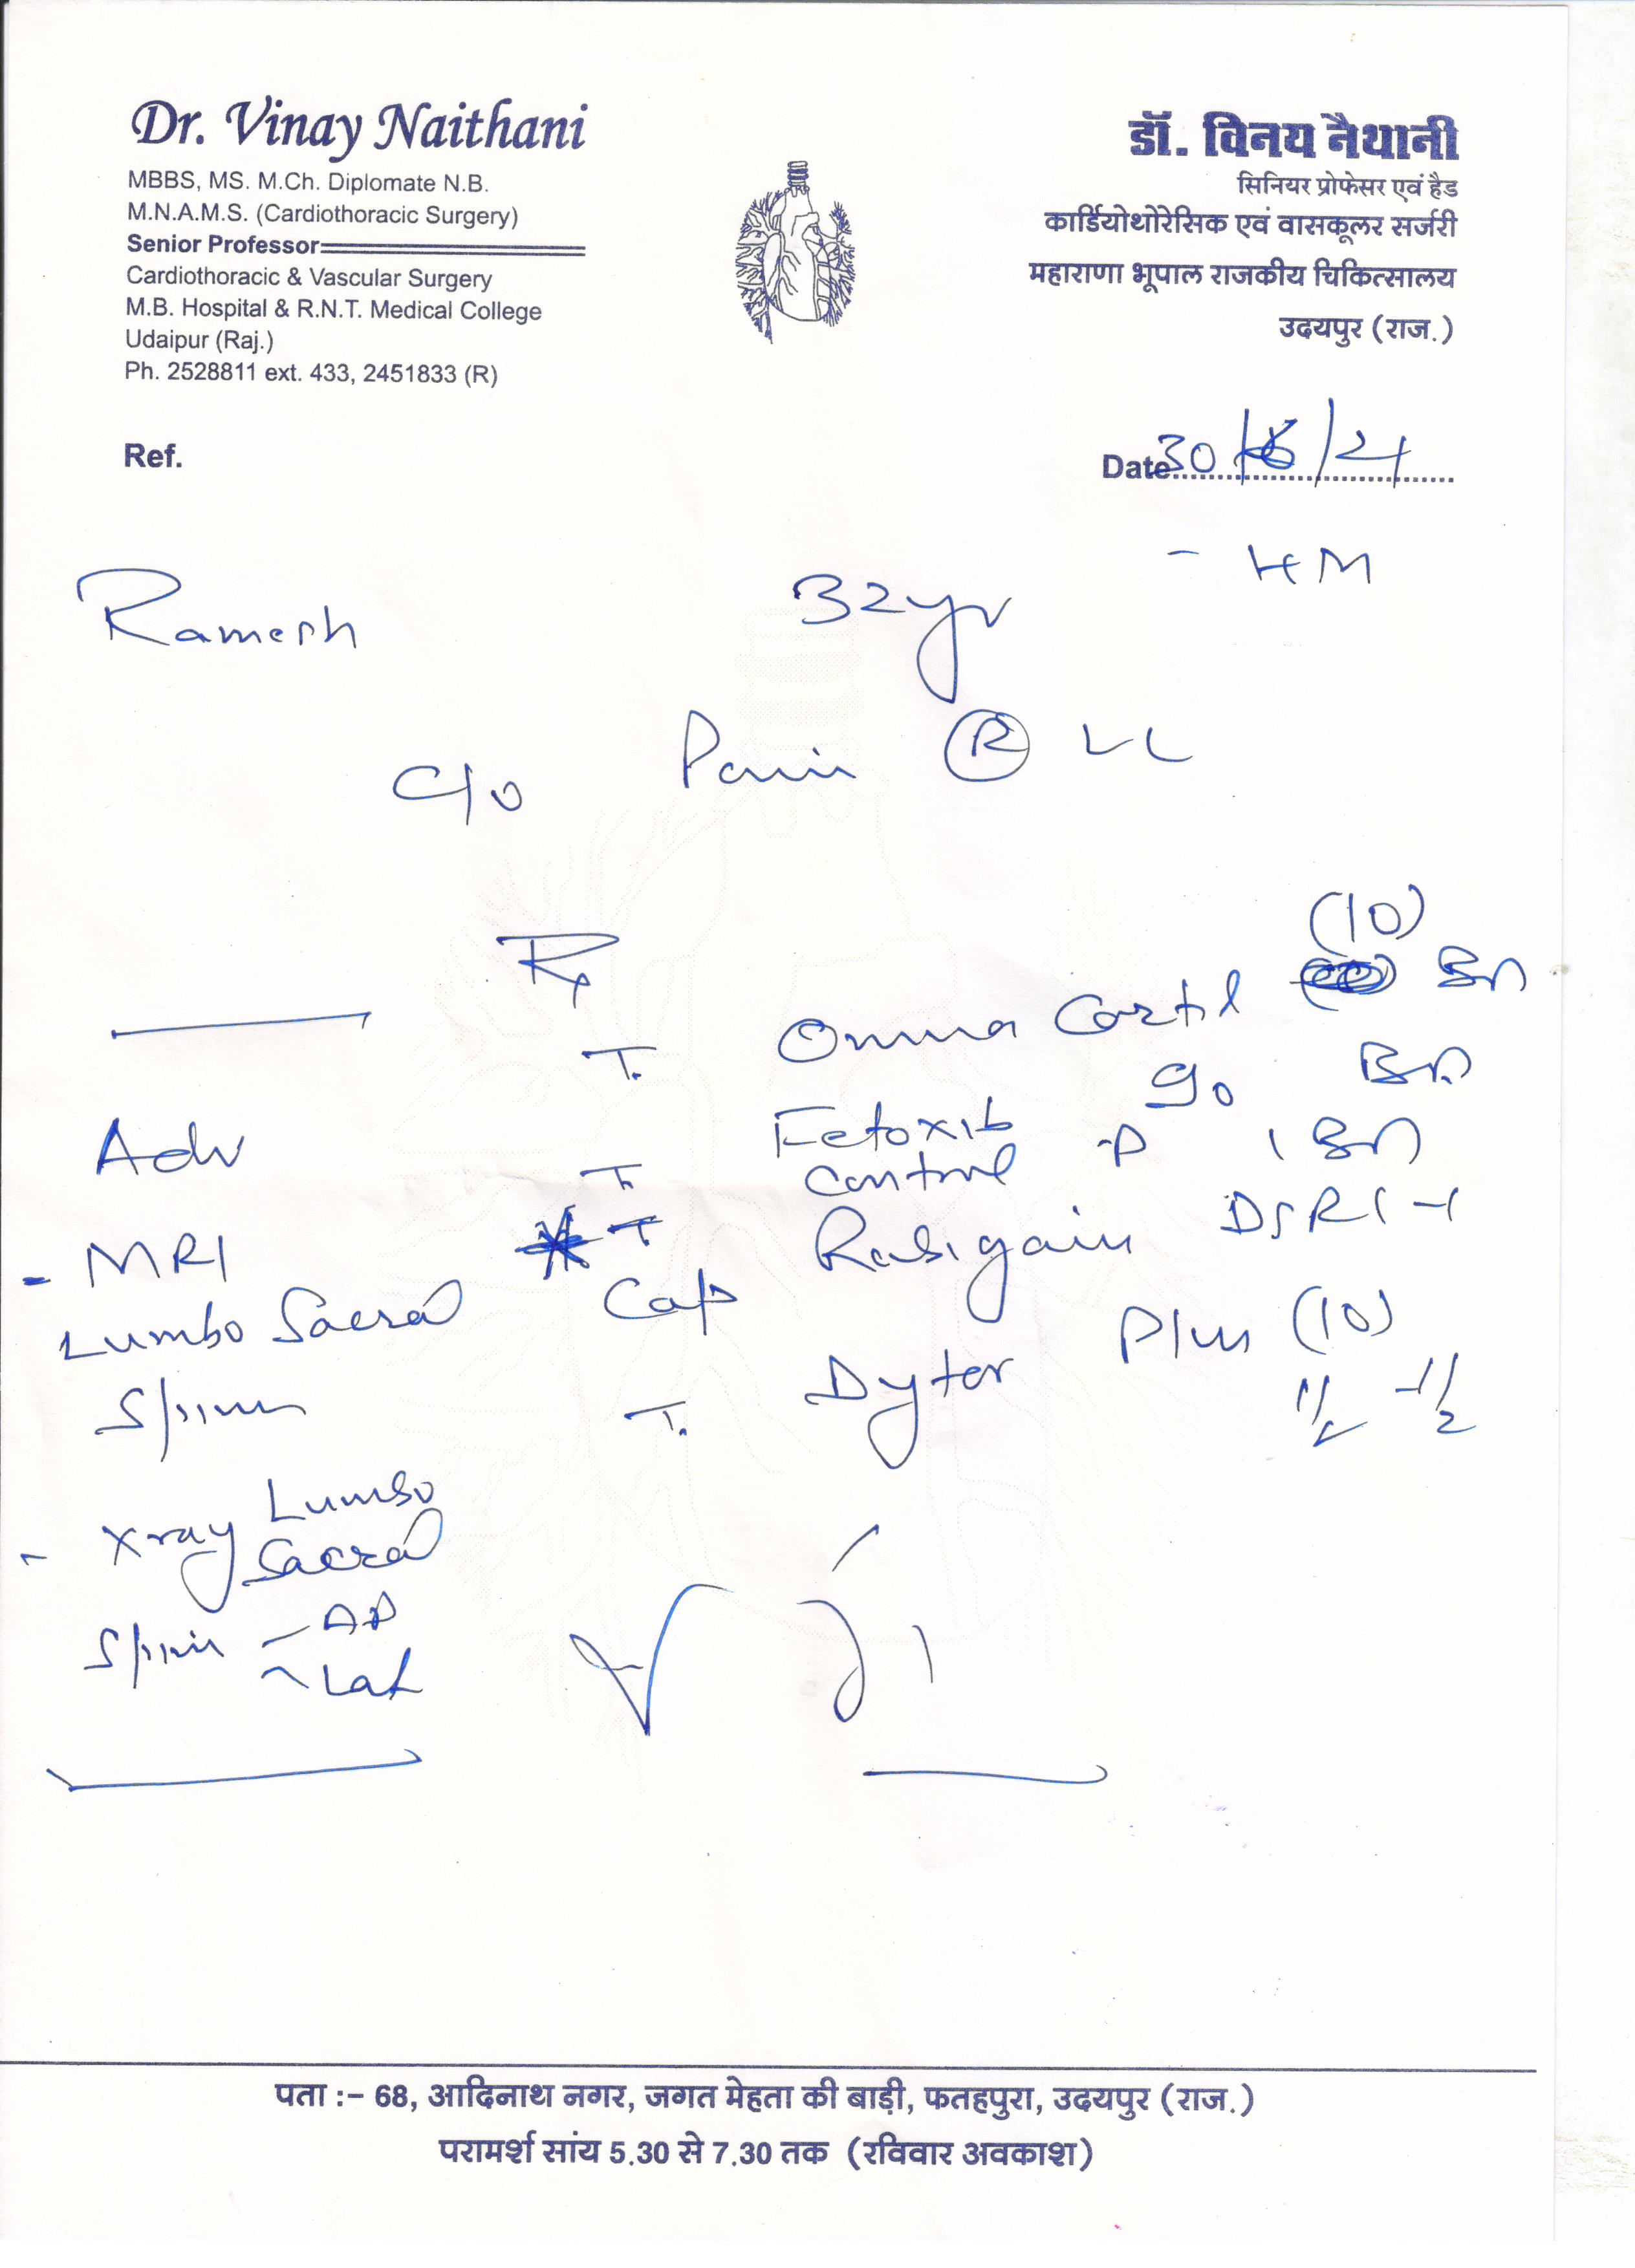 Dr. Vinay Naithani
MBBS, MS. M.Ch. Diplomate N.B.
M.N.A.M.S. (Cardiothoracic Surgery)
Senior Professor
Cardiothoracic & Vascular Surgery
M.B. Hospital & R.N.T. Medical College
Udaipur (Raj.)
Ph. 2528811 ext. 433, 2451833 (R)
डॉ. विनय नैथानी
सिनियर प्रोफेसर एवं हैड
कार्डियोथोरेसिक एवं वासकूलर सर्जरी
महाराणा भूपाल राजकीय चिकित्सालय
उदयपुर (राज.)
Ref.
Date 30/6/21
- HM
Ramesh 32yr
C/o Pain Ⓡ LL
Rx
(10)
T. Omna Cortil
T. Fetoxib 90
control -P 1
T Cap Rabigain DSR 1-1
T. Dytor Plus (10)
1/2 -1/2
Adv
- MRI
Lumbo Sacral
Spine
- Xray Lumbo
Sacral
Spine - AP
~ Lat
पता :– 68, आदिनाथ नगर, जगत मेहता की बाड़ी, फतहपुरा, उदयपुर (राज.)
परामर्श सांय 5.30 से 7.30 तक (रविवार अवकाश)